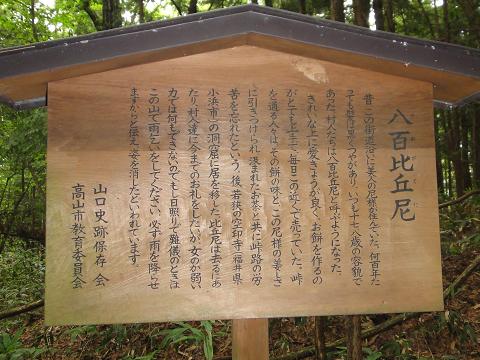 八百比丘尼
昔この街道沿に美人の尼様が住んでいた。何百年た
っても髪は黒くつやがあり、いつも十七八歳の容貌で
あった。村人たちは八百比丘尼と呼ぶようになった。
きれいな上に愛きょうが良く、お餅を作るの
がとても上手で、毎日この近くで売っていた。峠
を通る人々は、その餅の味と、この尼様の美しさ
に引きつけられ、汲まれたお茶と共に峠路の労
苦を忘れたという。後、若狭の空印寺(福井県
小浜市)の洞窟に居を移した比丘尼は去るにあ
たり、「村人達に今までのお礼をしたいが、女のか弱い
力では何もできないのでもし日照りで難儀のときは
この山で雨乞いをしてください。必ず雨を降らせ
ますから」と伝え、姿を消したといわれています。
山口史跡保存会
高山市教育委員会